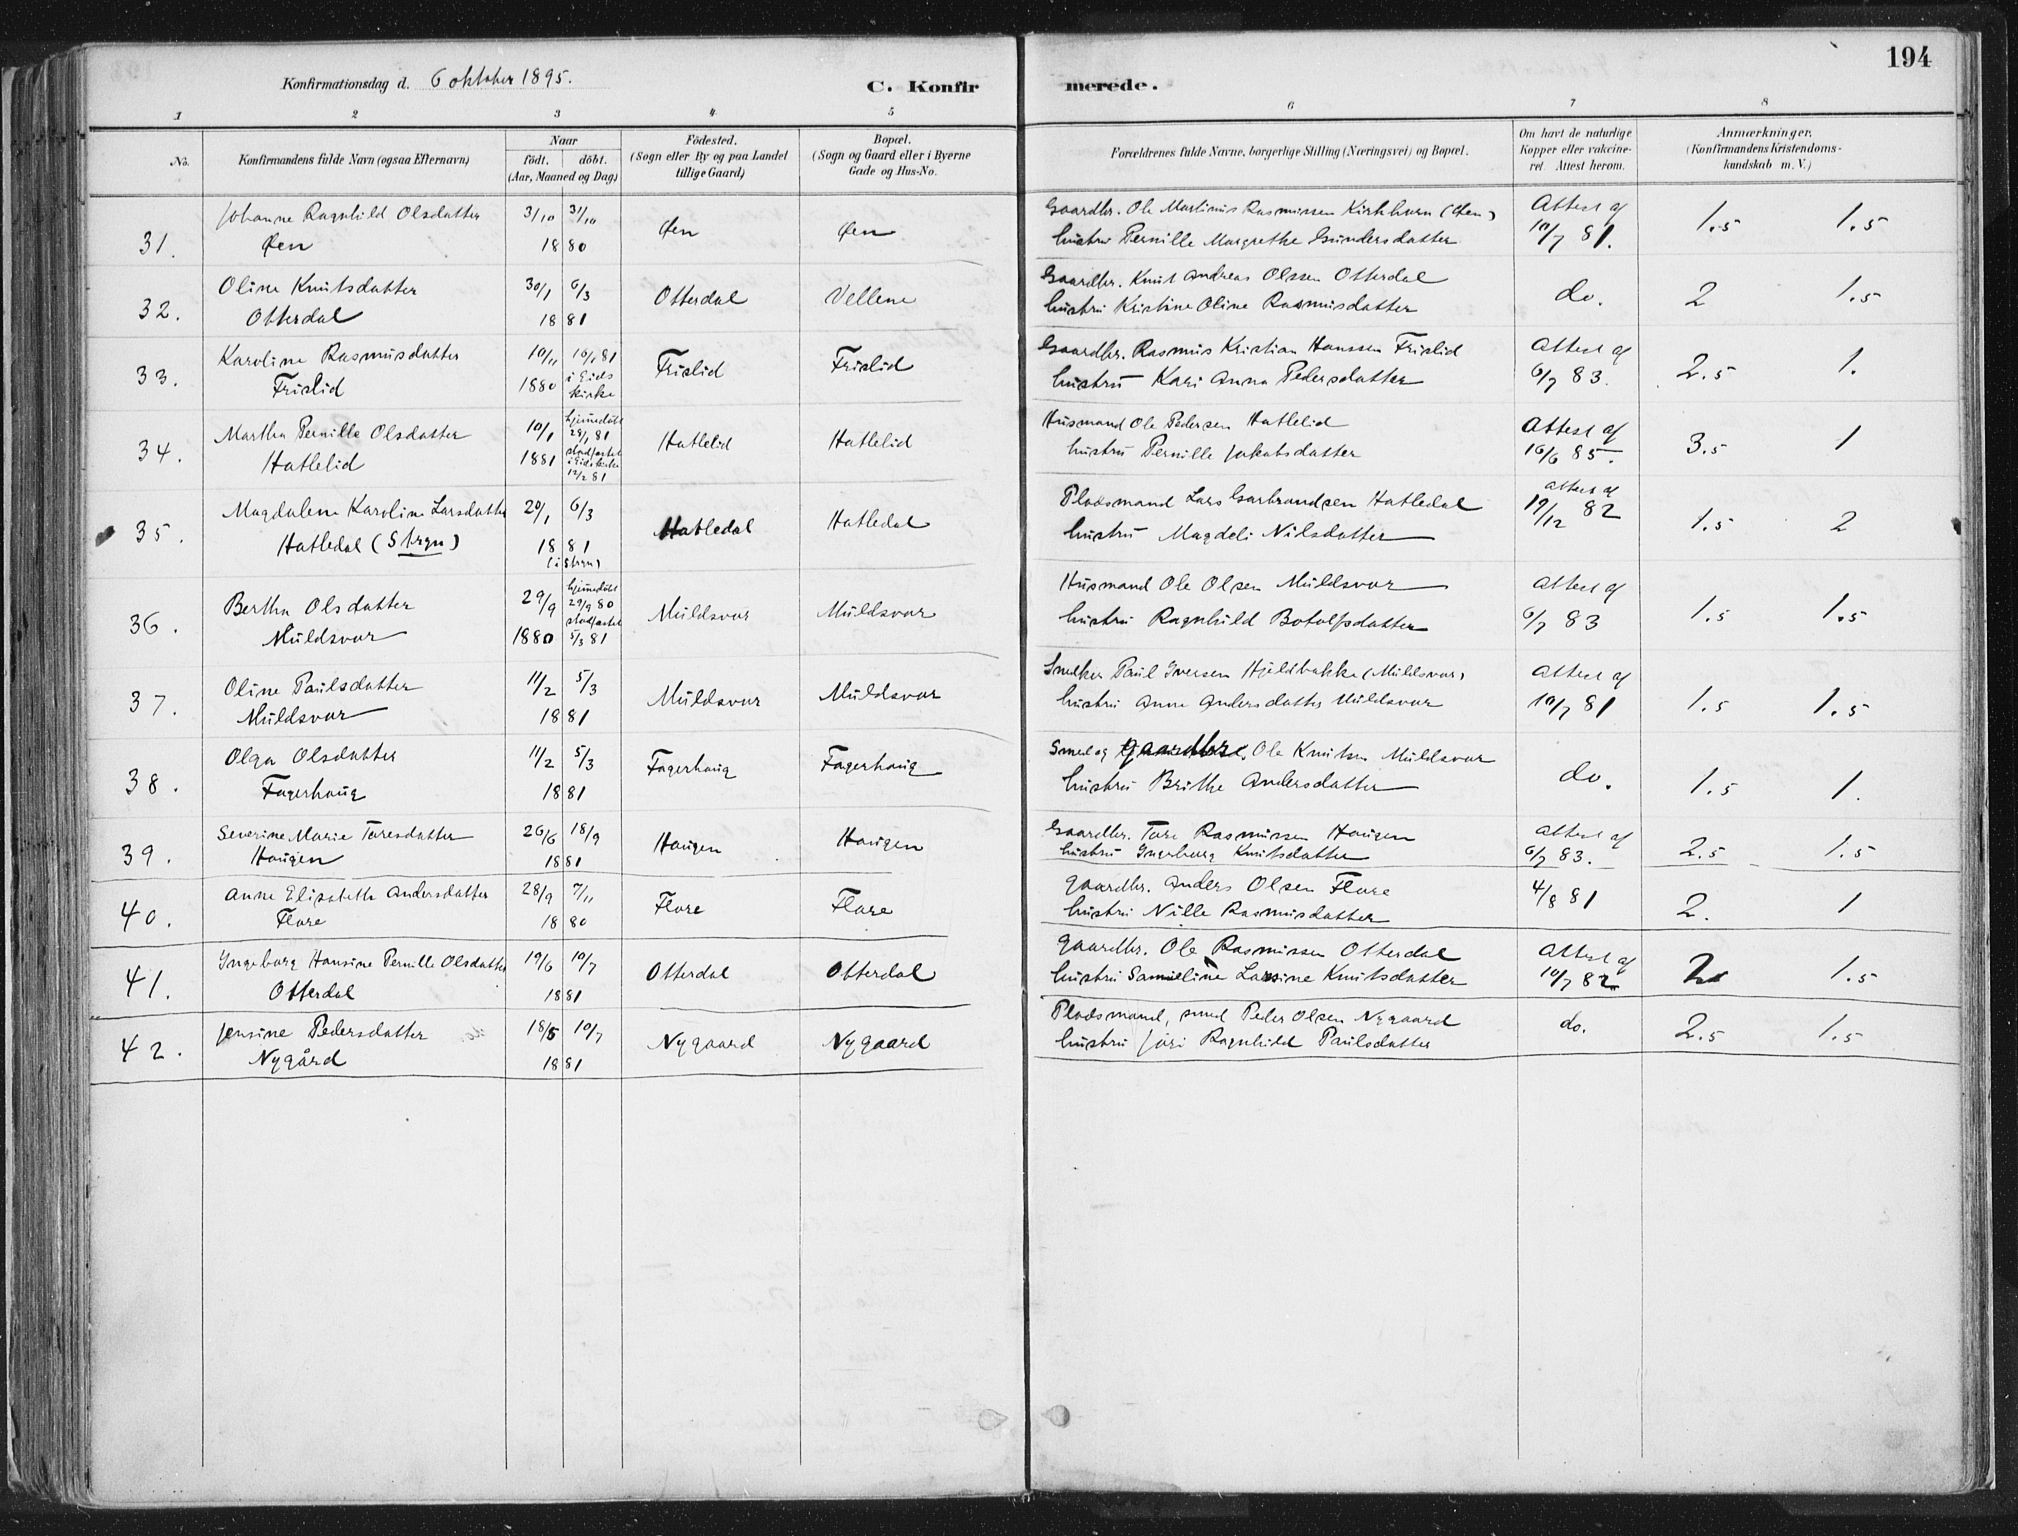 194
Konfirmationsdag d. 6 oktober 1895.
C. Konfirmerede.
1 2 3 4 5 6 7 8
No.
Konfirmandens fulde Navn (ogsaa Efternavn)
Naar
födt. döbt.
(Aar, Maaned og Dag)
Födested.
(Sogn eller By og paa Landet
tillige Gaard)
Bopæl.
(Sogn og Gaard eller i Byerne
Gade og Hus-No.
Forældrenes fulde Navne, borgerlige Stilling (Næringsvei) og Bopæl.
Om havt de naturlige
Kopper eller vakcine-
ret. Attest herom.
Anmærkninger.
(Konfirmandens Kristendoms-
kundskab m. V.)
Johanne Ragnhild Olsdatter 3/10 31/10 Gaardbr. Ole Martinus Rasmussen Kirkhorn (Øen) Attest af
31. Øen 18 80 Øen Øen hustru Pernille Margrethe Gundersdatter 10/7 81. 1.5 1.5
Oline Knutsdatter 30/1 6/3 Gaardbr. Knut Andreas Olssen Otterdal
32. Otterdal 18 81 Otterdal Vellene hustru Kristine Oline Rasmusdatter do. 2 1.5
Karoline Rasmusdatter 10/11 16/1 81 Gaardbr. Rasmus Kristian Hanssen Frislid Attest af
33. Frislid 1880 i Eids kirke Frislid Frislid hustru Kari Anna Pedersdatter 6/7 83. 2.5 1.
Martha Pernille Olsdatter 10/1 hjemedøbt 29/1 81 Husmand Ole Pedersen Hatlelid Attest af
34. Hatlelid 1881 stadfæstet i Eids kirke 12/2 81 Hatlelid Hatlelid hustru Pernille Jakobsdatter 16/6 85. 3.5 1
Magdalene Karoline Larsdatter 20/1 6/3 Pladsmand Lars Garbrandsen Hatledal attest af
35. Hatledal (Stryn) 18 81 (i Stryn) Hatledal Hatledal hustru Magdeli Nilsdatter 19/12 82 1.5 2
Bertha Olsdatter 29/9 hjemedøbt 29/9 80 Husmand Ole Olsen Muldsvor attest af
36. Muldsvor 1880 stadfæstet 5/3 81 Muldsvor Muldsvor hustru Ragnhild Botolfsdatter 6/7 83 1.5 1.5
Oline Paulsdatter 11/2 5/3 Snelker Paul Iversen Hjeldbakke (Muldsvor) attest af
37. Muldsvor 18 81 Muldsvor Muldsvor hustru Anne Andersdatter Muldsvor 10/7 81 1.5 1.5
Olga Olsdatter 11/2 5/3 Smed og gaardbr. Ole Knutsen Muldsvor
38. Fagerhaug 18 81 Fagerhaug Fagerhaug hustru Brithe Andersdatter do. 1.5 1.
Severine Marie Taresdatter 26/6 18/9 Gaardbr. Tare Rasmussen Haugen attest af
39. Haugen 1881 Haugen Haugen hustru Ingeborg Knutsdatter 6/7 83. 2.5 1.5
Anne Elisabeth Andersdatter 28/9 7/11 gaardbr. Anders Olsen Flore 4/8 81
40. Flore 18 80 Flore Flore hustru Nille Rasmusdatter 2. 1
Ingeborg Hansine Pernille Olsdatter 19/6 10/7 gaardbr. Ole Rasmussen Otterdal Attest af
41. Otterdal 1881 Otterdal Otterdal hustru Sameline Larsine Knutsdatter 10/7 82 2 1.5
Jensine Pedersdatter 18/5 10/7 Pladsmand, smed Peder Olsen Nygaard do.
42. Nygård 18 81 Nygaard Nygaard hustru Jori Ragnhild Paulsdatter 2.5 1.5